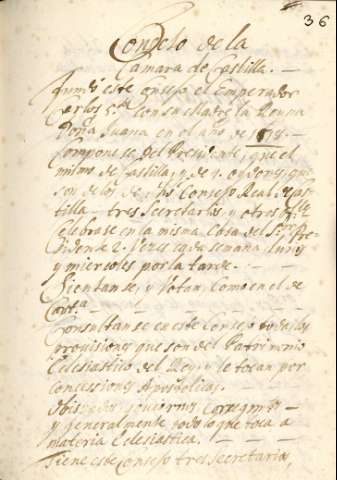 36
Consejo de la
Camara de Castilla. —
fundó este Consejo el Emperador
Carlos 5.º con su Madre la Reyna
Doña Juana en el año de 1518. —
Componese Del Presidente, que el
mismo de Castilla, y de 4. oydores, que
son de los de dho Consejo Real de Cas
tilla — tres Secretarios y otros
Celebrase en la misma Casa del Sr Pre
sidente 2. Vezes cada semana lunes
y miercoles por la tarde. —
Sientanse, y Votan, como en el de
Cast.a — — — —
Consultanse en este Consejo todas las
provisiones que son del Patrimonio
Eclesiastico del Rey, y le tocan por
concessiones Apostolicas.
Obispados, goviernos Corregim.tos —
y generalmente todo lo que toca a
materia Eclesiastica. — — —
Tiene este Consejo tres Secretarios,